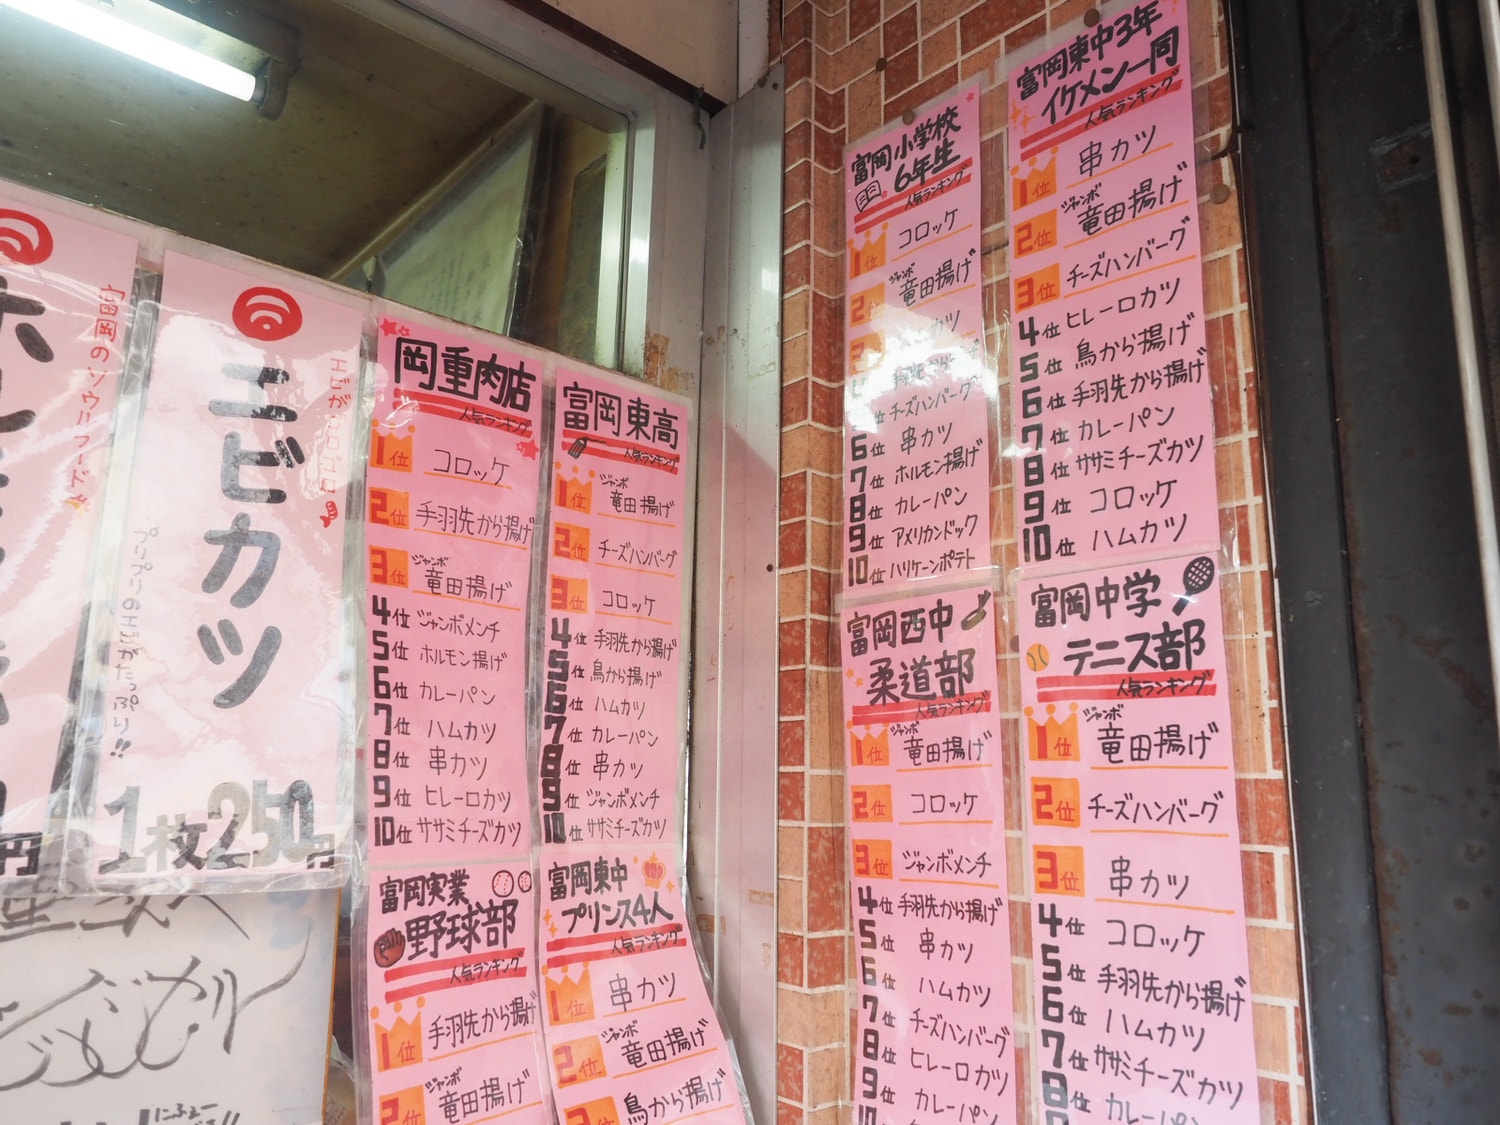 富岡のソウルフード
エビカツ
エビがゴロゴロ
プリプリのエビがたっぷり!!
1枚250円
岡重肉店
人気ランキング
1位 コロッケ
2位 手羽先から揚げ
3位 ジャンボ竜田揚げ
4位 ジャンボメンチ
5位 ホルモン揚げ
6位 カレーパン
7位 ハムカツ
8位 串カツ
9位 ヒレーロカツ
10位 ササミチーズカツ
富岡東高
人気ランキング
1位 ジャンボ竜田揚げ
2位 チーズハンバーグ
3位 コロッケ
4位 手羽先から揚げ
5位 鳥から揚げ
6位 ハムカツ
7位 カレーパン
8位 串カツ
9位 ジャンボメンチ
10位 ササミチーズカツ
富岡実業
野球部
人気ランキング
1位 手羽先から揚げ
2位 ジャンボ竜田揚げ
富岡東中
プリンス4人
人気ランキング
1位 串カツ
2位 ジャンボ竜田揚げ
3位 鳥から揚げ
富岡小学校
6年生
人気ランキング
1位 コロッケ
2位 ジャンボ竜田揚げ
カツ
位 チーズハンバーグ
6位 串カツ
7位 ホルモン揚げ
8位 カレーパン
9位 アメリカンドック
10位 ハリケーンポテト
富岡東中3年
イケメン一同
人気ランキング
1位 串カツ
2位 ジャンボ竜田揚げ
3位 チーズハンバーグ
4位 ヒレーロカツ
5位 鳥から揚げ
6位 手羽先から揚げ
7位 カレーパン
8位 ササミチーズカツ
9位 コロッケ
10位 ハムカツ
富岡西中
柔道部
人気ランキング
1位 ジャンボ竜田揚げ
2位 コロッケ
3位 ジャンボメンチ
4位 手羽先から揚げ
5位 串カツ
6位 ハムカツ
7位 チーズハンバーグ
8位 ヒレーロカツ
9位 カレーパン
富岡中学
テニス部
人気ランキング
1位 ジャンボ竜田揚げ
2位 チーズハンバーグ
3位 串カツ
4位 コロッケ
5位 手羽先から揚げ
6位 ハムカツ
7位 ササミチーズカツ
8位 カレーパン